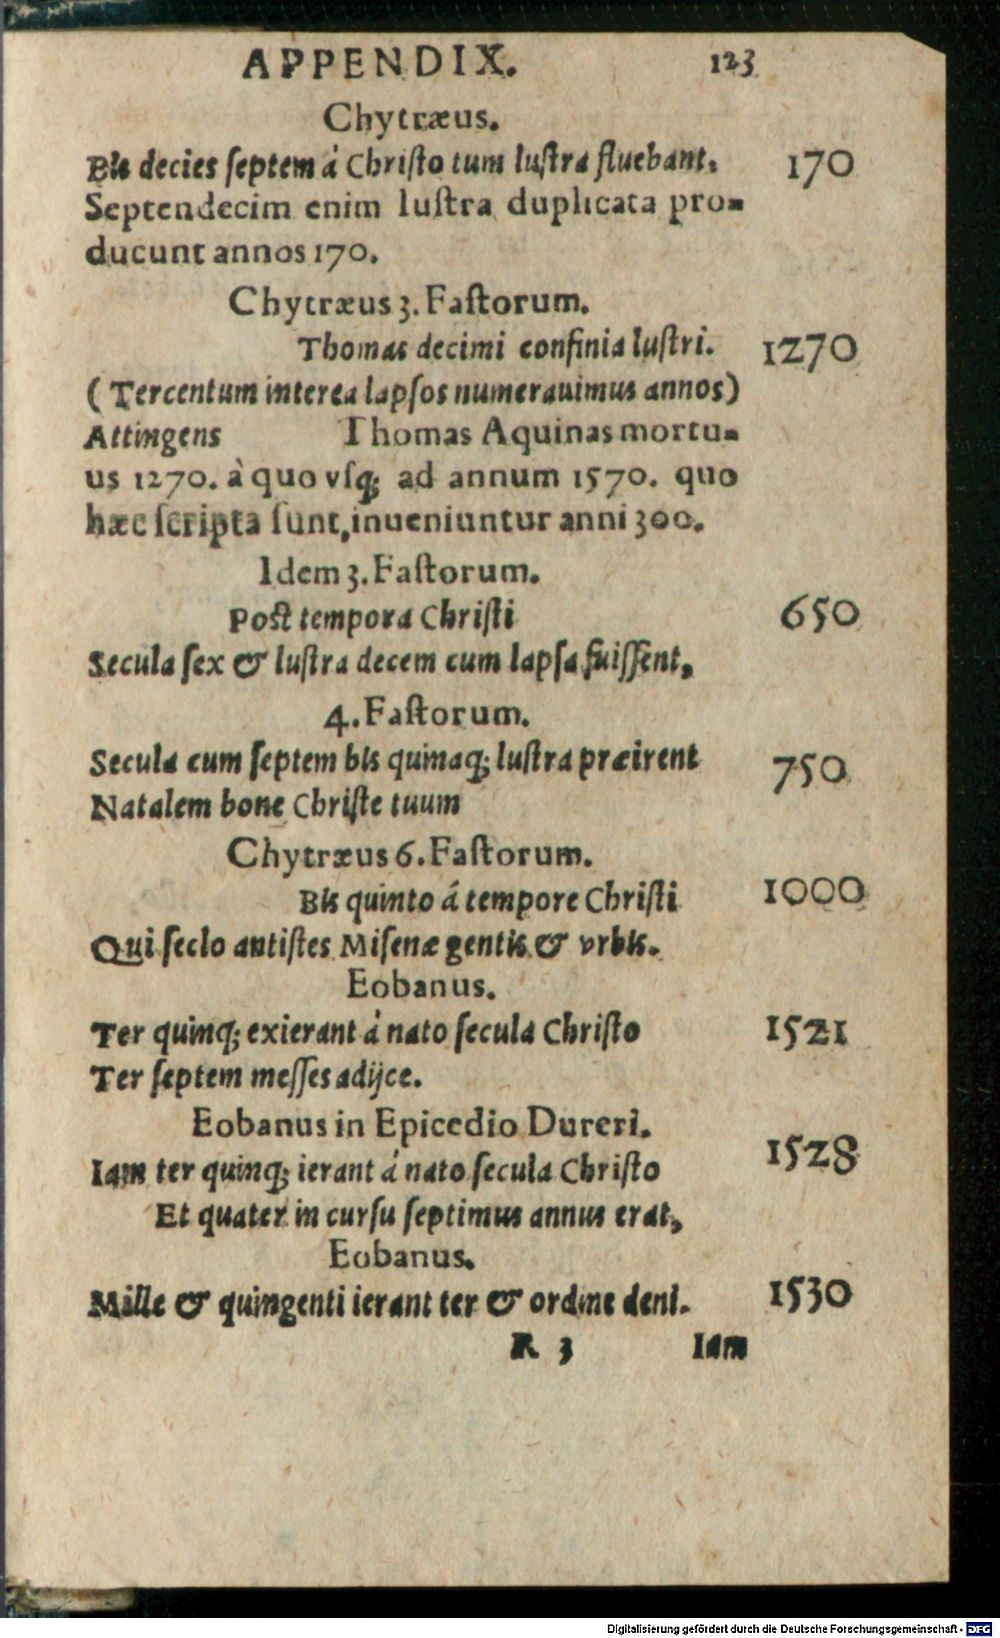 APPENDIX. 123
Chytræus.
Bis decies ſeptem á Chriſto tum luſtra fluebant. 170
Septendecim enim luſtra duplicata pro-
ducunt annos 170.
Chytræus 3. Faſtorum.
Thomas decimi confinia luſtri. 1270
(Tercentum interea lapſos numerauimus annos)
Attingens Thomas Aquinas mortu-
us 1270. à quo vſq; ad annum 1570. quo
hæc ſcripta ſunt, inueniuntur anni 300.
Idem 3. Faſtorum.
Poſt tempora Chriſti 650
Secula ſex & luſtra decem cum lapſa fuiſſent,
4. Faſtorum.
Secula cum ſeptem bis quinaq; luſtra præirent 750
Natalem bone Chriſte tuum
Chytræus 6. Faſtorum.
Bis quinto á tempore Chriſti 1000
Qui ſeclo antiſtes Miſenæ gentis & vrbis.
Eobanus.
Ter quinq; exierant á nato ſecula Chriſto 1521
Ter ſeptem meſſes adijce.
Eobanus in Epicedio Dureri.
Iam ter quinq; ierant á nato ſecula Chriſto 1528
Et quater in curſu ſeptimus annus erat,
Eobanus.
Mille & quingenti ierant ter & ordine deni. 1530
R 3 Iam
Digitalisierung gefördert durch die Deutsche Forschungsgemeinschaft - DFG